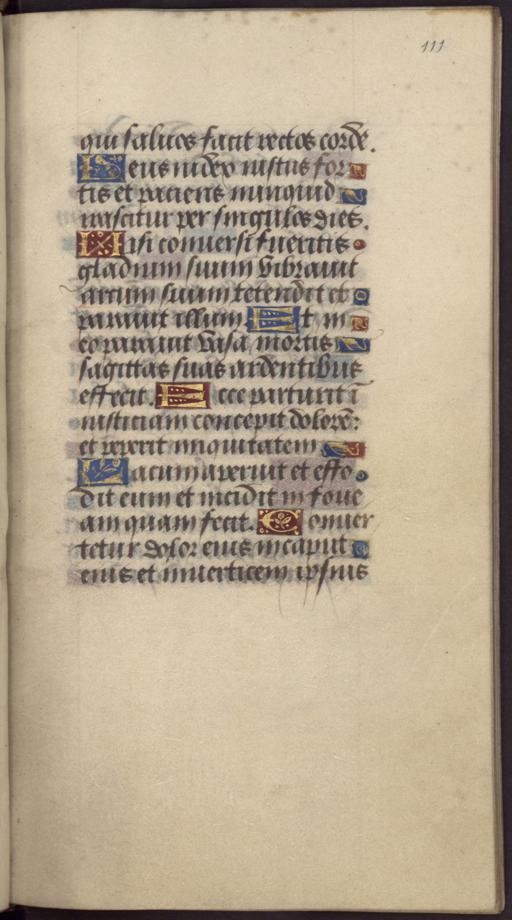 111
qui saluos facit rectos corde.
Deus iudex iustus for
tis et paciens nunquid
irascitur per singulos dies.
Nisi conuersi fueritis
gladium suum vibrauit
arcum suum tetendit et
parauit illum Et in
eo parauit vasa mortis
sagittas suas ardentibus
effecit. Ecce parturit ī
iusticiam concepit dolorē:
et peperit iniquitatem
Lacum aperuit et effo
dit eum et incidit in foue
am quam fecit. Conuer
tetur dolor eius in caput
eius et in uerticem ipsius